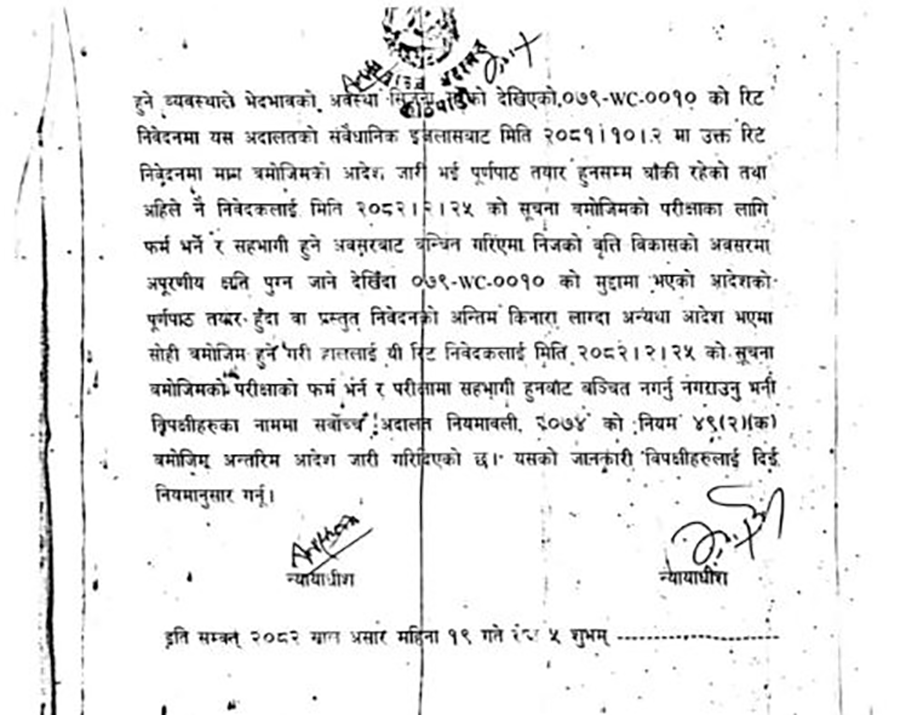 सर्वोच्च अदालत
काठमाडौं
हुने व्यवस्थाले भेदभावको अवस्था सिर्जना देखिएको,०७९-WC-००१० को रिट
निवेदनमा यस अदालतको संवैधानिक इजलासबाट मिति २०८१।१०।२ मा उक्त रिट
निवेदनमा माग बमोजिमको आदेश जारी भई पूर्णपाठ तयार हुनसम्म बाँकी रहेको तथा
अहिले नै निवेदकलाई मिति २०८२।२।२५ को सूचना बमोजिमको परीक्षाका लागि
फर्म भर्ने र सहभागी हुने अवसरबाट बन्चित गरिएमा निजको बृत्ति विकासको अवसरमा
अपूरणीय क्षति पुग्न जाने देखिँदा ०७९-WC-००१० को मुद्दामा भएको आदेशको
पूर्णपाठ तयार हुँदा वा प्रस्तुत निवेदनको अन्तिम किनारा लाग्दा अन्यथा आदेश भएमा
सोही बमोजिम हुने गरी हाललाई यी रिट निवेदकलाई मिति २०८२।२।२५ को सूचना
बमोजिमको परीक्षाको फर्म भर्न र परीक्षामा सहभागी हुनबाट बञ्चित नगर्नु नगराउनु भनी
विपक्षीहरुका नाममा सर्वोच्च अदालत नियमावली, २०७४ को नियम ४९(२)(क)
बमोजिम अन्तरिम आदेश जारी गरिदिएको छ। यसको जानकारी विपक्षीहरुलाई दिई
नियमानुसार गर्नू।
न्यायाधीश न्यायाधीश
इति सम्वत् २०८२ साल असार महिना १९ गते रोज ५ शुभम् ----------------